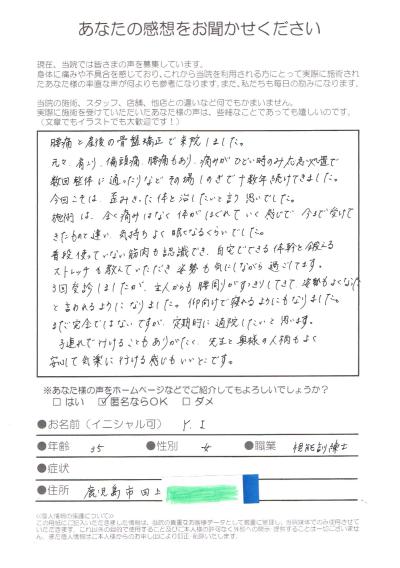 あなたの感想をお聞かせください
現在、当院では皆さまの声を募集しています。
身体に痛みや不具合を感じており、これから当院を利用される方にとって実際に施術され
たあなた様の率直な声が何よりも参考になります。また、私たちも毎日の励みになります。
当院の施術、スタッフ、店舗、他店との違いなど何でもかまいません。
実際に施術を受けていただいたあなた様の声は、些細なことであっても嬉しいのです。
(文章でもイラストでも大歓迎です!)
腰痛と産後の骨盤矯正で来院しました。
元々、肩こり、偏頭痛、腰痛もあり、痛みがひどい時のみ応急処置で
数回整体に通ったりなど その場しのぎで十数年続けてきました。
今回こそは、歪みきった体を治したいと言う思いでした。
施術は、全く痛みはなく体がほぐれていく感じで 今まで受けて
きたものと違い、気持ちよく眠くなるくらいでした。
普段使っていない筋肉も認識でき、自宅でできる体幹を鍛える
ストレッチも教えていただき 姿勢も気にしながら過ごしてます。
3回受診しましたが、主人からも腰回りがすっきりしてきて、姿勢もよくなった
と言われるようになりました。仰向けで寝れるようにもなりました。
まだ完全ではないですが、定期的に通院したいと思います。
子連れで行けることもありがたく、先生と奥様の人柄もよく
安心して気楽に行ける感じもいいとこです。
※あなた様の声をホームページなどでご紹介してもよろしいでしょうか?
□はい ☑匿名ならOK □ダメ
●お名前(イニシャル可) Y.I
●年齢 35 ●性別 女 ●職業 視能訓練士
●症状
●住所 鹿児島市田上
≪個人情報の保護について≫